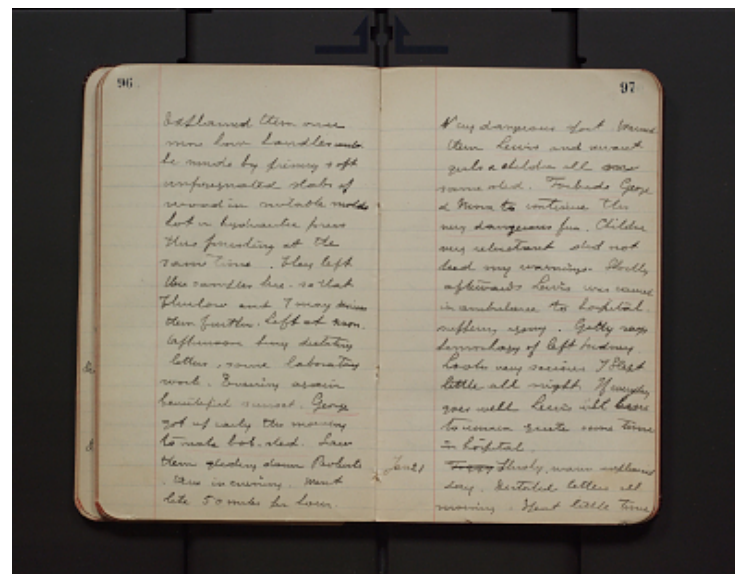 96
Explained them once
more how handles
be made by firing soft
impregnated slabs of
wood in suitable molds
hot in hydraulic press
thus finishing at the
same time. They left
the samples here. so that
Thurlow and I may
them further. Left at noon.
Afternoon busy dictating
letters, some laboratory
work. Evening again
beautiful sunset. George
got up early this morning
to make bob. sled. Saw
them gliding down Roberts
Ave in evening. Went
like 50 miles per hour.
97
Very dangerous sport. Warned
them Lewis and
girls & children all
same sled. Forbade George
& Nina to continue this
very dangerous fun. Children
very reluctant did not
heed my warnings. Shortly
afterwards Lewis was carried
in ambulance to hospital.
suffering agony. Getty says
hemorhagy of left kidney.
Looks very serious. I slept
little all night. If everything
goes well Lewis will have
to remain quite some time
in hospital.
Jan 21
Thursday, warm unpleasant
day. Dictated letters all
morning. Spent little time